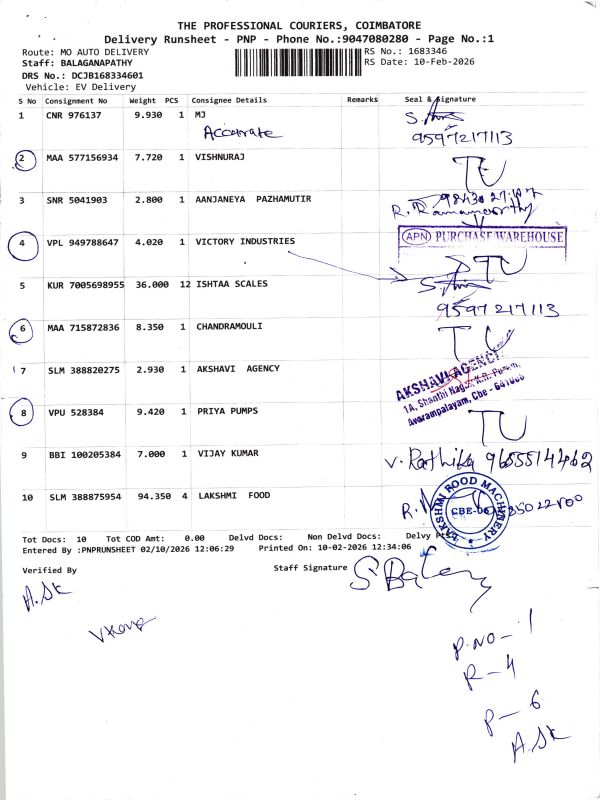 THE PROFESSIONAL COURIERS, COIMBATORE
Delivery Runsheet - PNP - Phone No.:9047080280 - Page No.:1
Route: MO AUTO DELIVERY RS No.: 1683346
Staff: BALAGANAPATHY RS Date: 10-Feb-2026
DRS No.: DCJB168334601
Vehicle: EV Delivery
S No Consignment No Weight PCS Consignee Details Remarks Seal & Signature
1 CNR 976137 9.930 1 MJ
Accurate
9597217113
2 MAA 577156934 7.720 1 VISHNURAJ
3 SNR 5041903 2.800 1 AANJANEYA PAZHAMUTIR
R. Ramamoorthy
4 VPL 949788647 4.020 1 VICTORY INDUSTRIES
APN PURCHASE WAREHOUSE
5 KUR 7005698955 36.000 12 ISHTAA SCALES
9597217113
6 MAA 715872836 8.350 1 CHANDRAMOULI
7 SLM 388820275 2.930 1 AKSHAVI AGENCY
AKSHAVI AGENCY
1A, Shanthi Nagar, K.R. Puram,
Avarampalayam, Cbe - 641006
8 VPU 528384 9.420 1 PRIYA PUMPS
9 BBI 100205384 7.000 1 VIJAY KUMAR
V. Rathika 9655514462
10 SLM 388875954 94.350 4 LAKSHMI FOOD
LAKSHMI FOOD MACHINERY
Tot Docs: 10 Tot COD Amt: 0.00 Delvd Docs: Non Delvd Docs: Delvy
Entered By :PNPRUNSHEET 02/10/2026 12:06:29 Printed On: 10-02-2026 12:34:06
Verified By Staff Signature
A.SK
P.NO- 1
R-4
P-6
A.SK